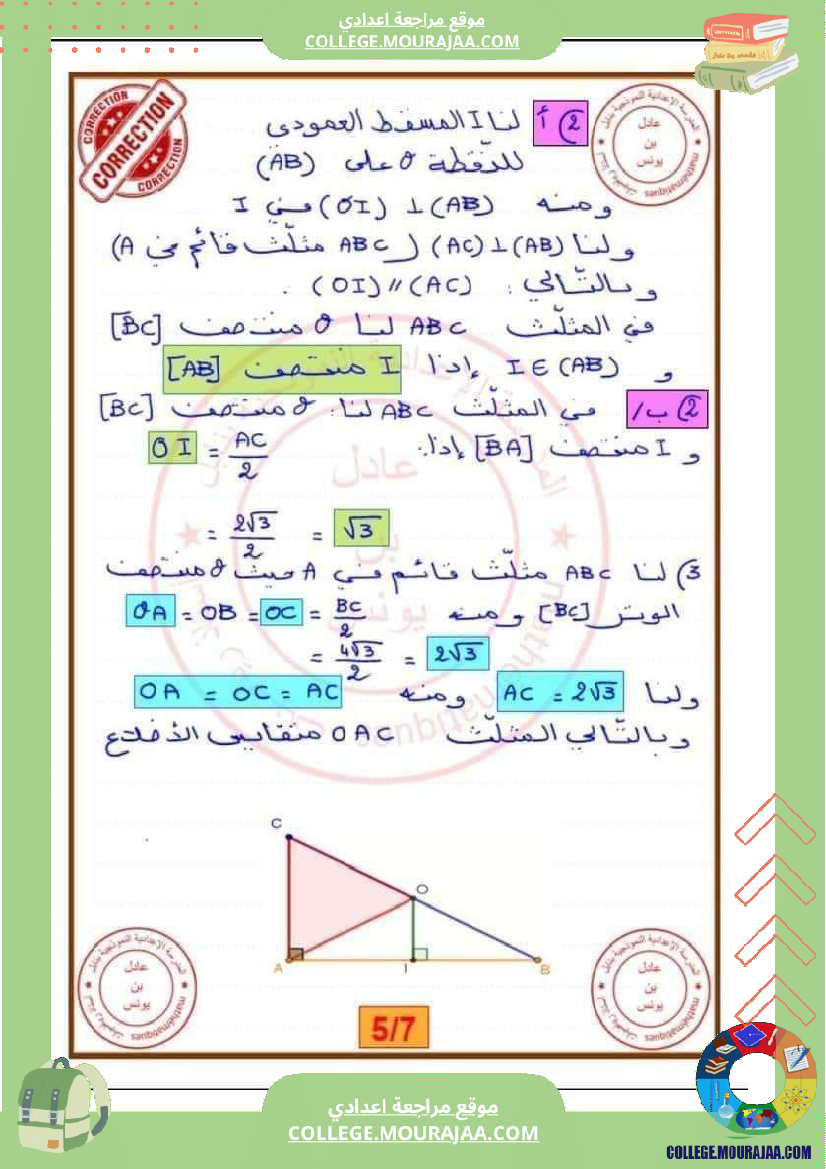 موقع مراجعة اعدادي
COLLEGE.MOURAJAA.COM
CORRECTION
CORRECTION
CORRECTION
عادل
بن
يونس
mathématiques
2) أ لنا I المسقط العمودي
للنقطة O على (AB)
ومنه (AB) ⊥ (OI) في I
ولنا (AB) ⊥ (AC) (ABC مثلّث قائم في A)
وبالتّالي : (AC) // (OI) .
في المثلّث ABC لنا O منتصف [BC]
و I ∈ (AB) إذا I منتصف [AB]
2) ب/ في المثلّث ABC لنا: O منتصف [BC]
و I منتصف [BA] إذا: OI = AC/2
= 2√3/2 = √3
3) لنا ABC مثلّث قائم في A حيث O منتصف
الوتر [BC] ومنه OA = OB = OC = BC/2
= 4√3/2 = 2√3
ولنا AC = 2√3 ومنه OA = OC = AC
وبالتّالي المثلّث OAC متقايس الأضلاع
عادل
بن
يونس
C
O
A
I
B
عادل
بن
يونس
mathématiques
عادل
بن
يونس
mathématiques
5/7
موقع مراجعة اعدادي
COLLEGE.MOURAJAA.COM
COLLEGE.MOURAJAA.COM